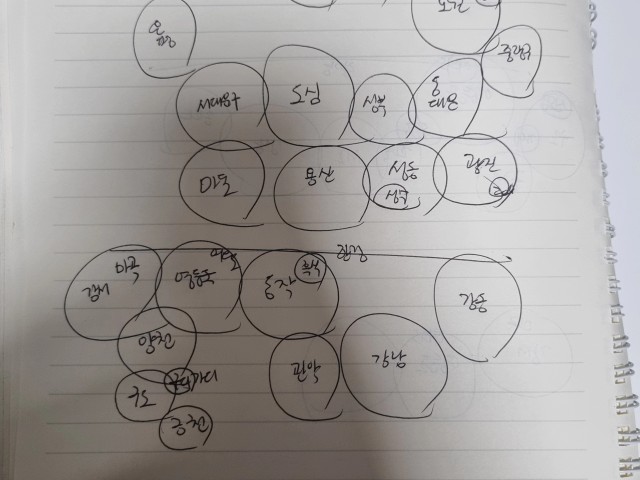 은평
노원
중랑구
서대문구
도심
성북
동
대문
마포
용산
성동
성수
광진
한강
강서
마곡
영등포
여의도
동작
흑석
강동
양천
관악
강남
구로
가디
금천